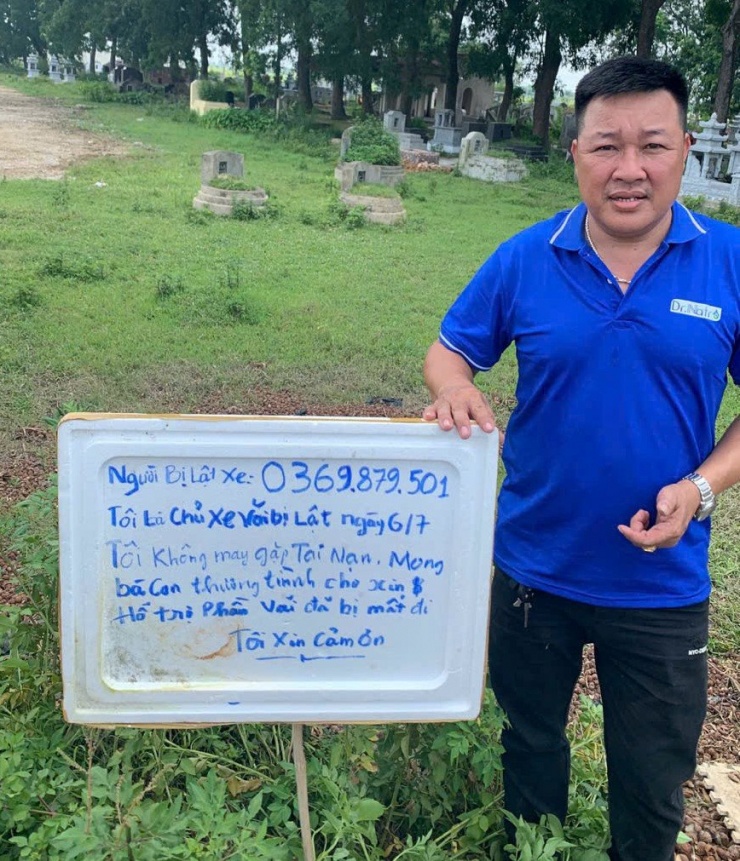 Người Bị Lật Xe: 0369.879.501
Tôi Là Chủ Xe Vải bị Lật ngày 6/7
Tôi Không may gặp Tai Nạn. Mong
bà Con thương tình cho xin $
Hỗ trợ Phần Vải đã bị mất đi
Tôi Xin Cảm ơn